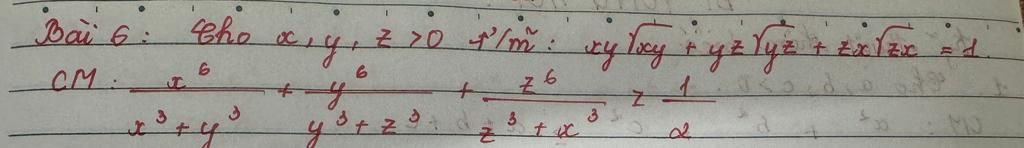 Bài 6: Cho x, y, z >0 t²/m̃: xy√xy + yz√yz + zx√zx = 1.
CM: x⁶/(x³+y³) + y⁶/(y³+z³) + z⁶/(z³+x³) ≥ 1/2